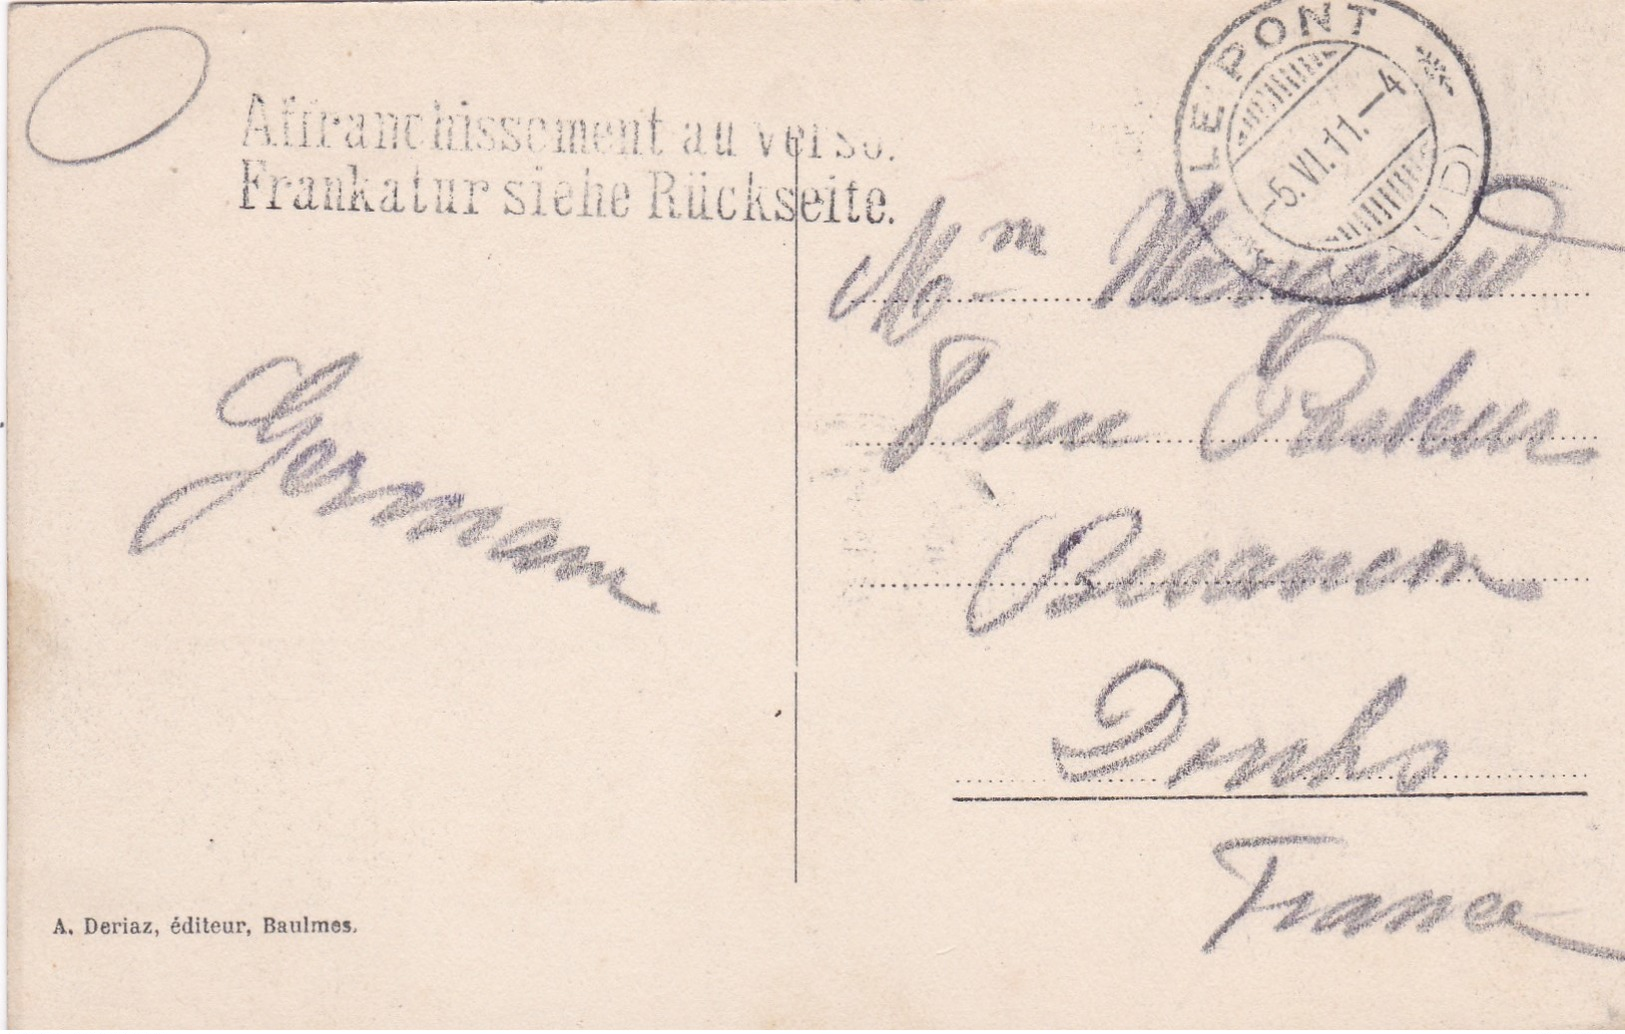 Affranchissement au verso.
Frankatur siehe Rückseite.
LE PONT
(VAUD)
-5.VI.11.-4
Mm
8 rue Pasteur
Besancon
Doubs
France
Germain
A. Deriaz, éditeur, Baulmes.